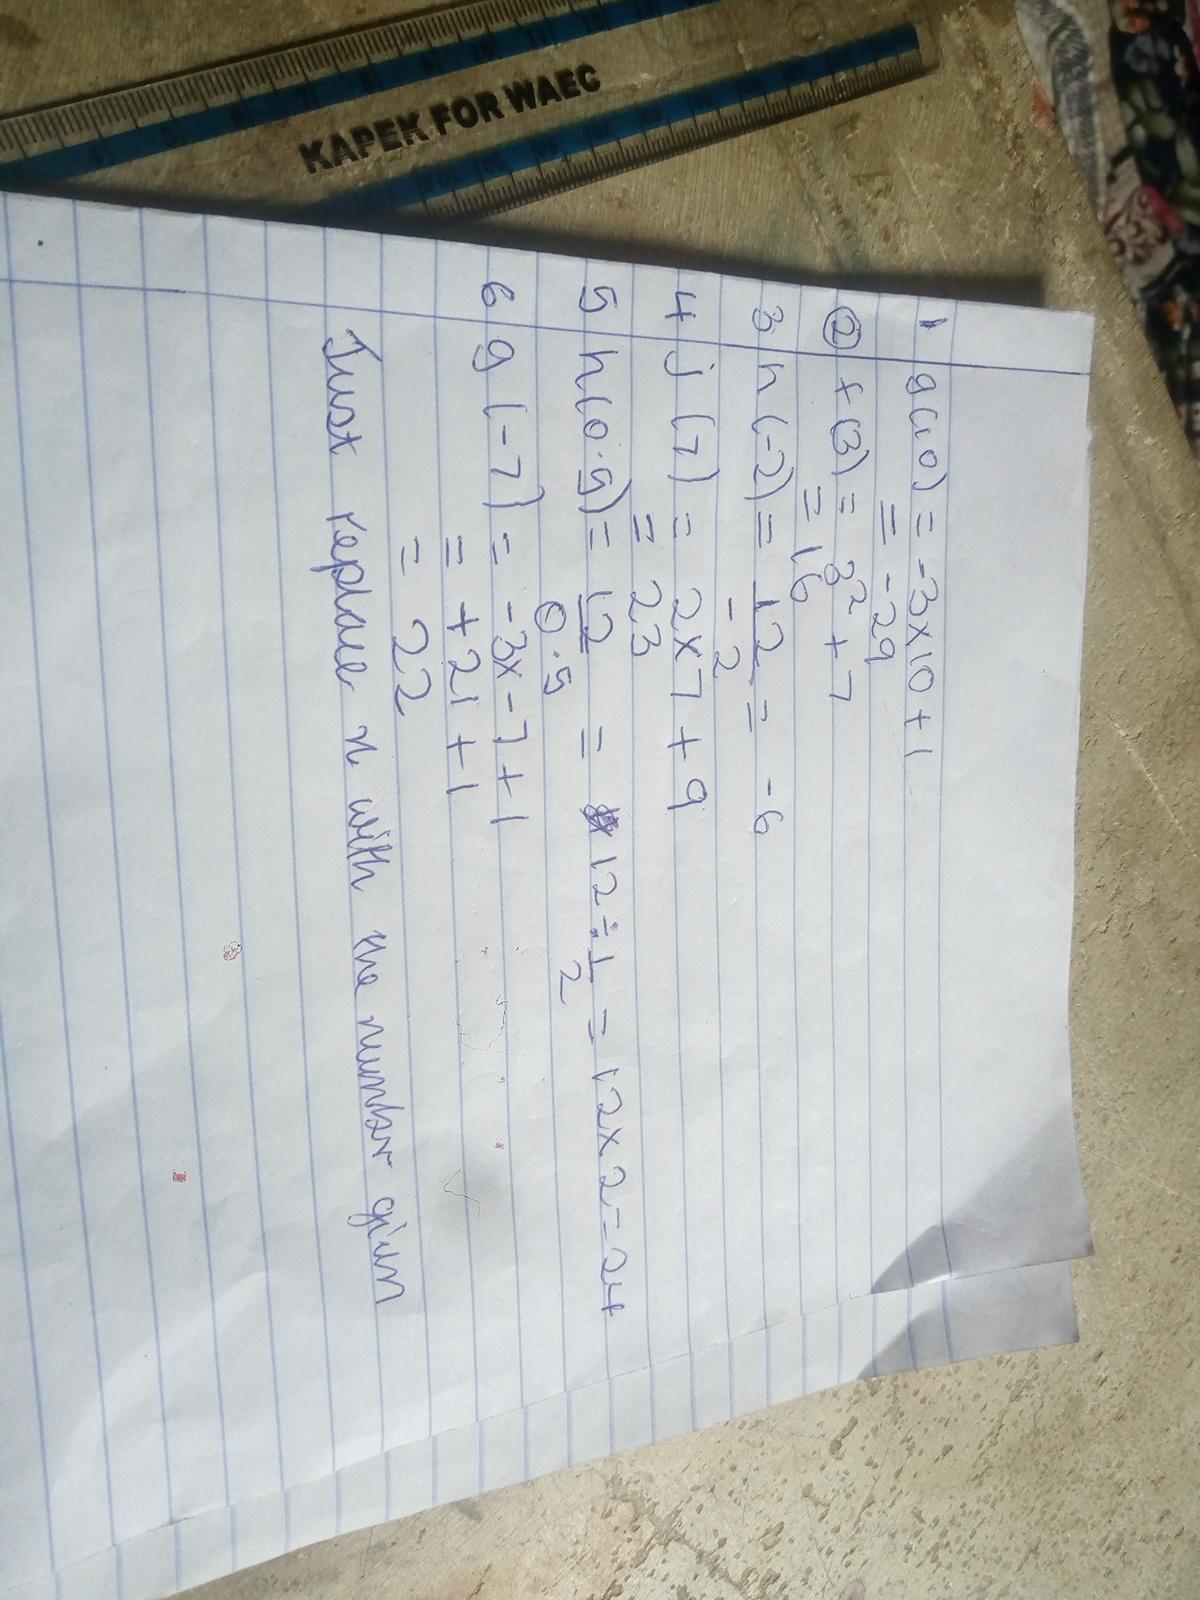 KAPEK FOR WAEC
1 g(10) = -3x10+1
= -29
② f(3) = 3² + 7
= 16
3 h(-2) = 12/-2 = -6
4 j(7) = 2x7+9
= 23
5 h(0.5) = 12/0.5 = 12÷1/2 = 12x2=24
6 g(-7) = -3x-7+1
= +21+1
= 22
Just replace x with the number given